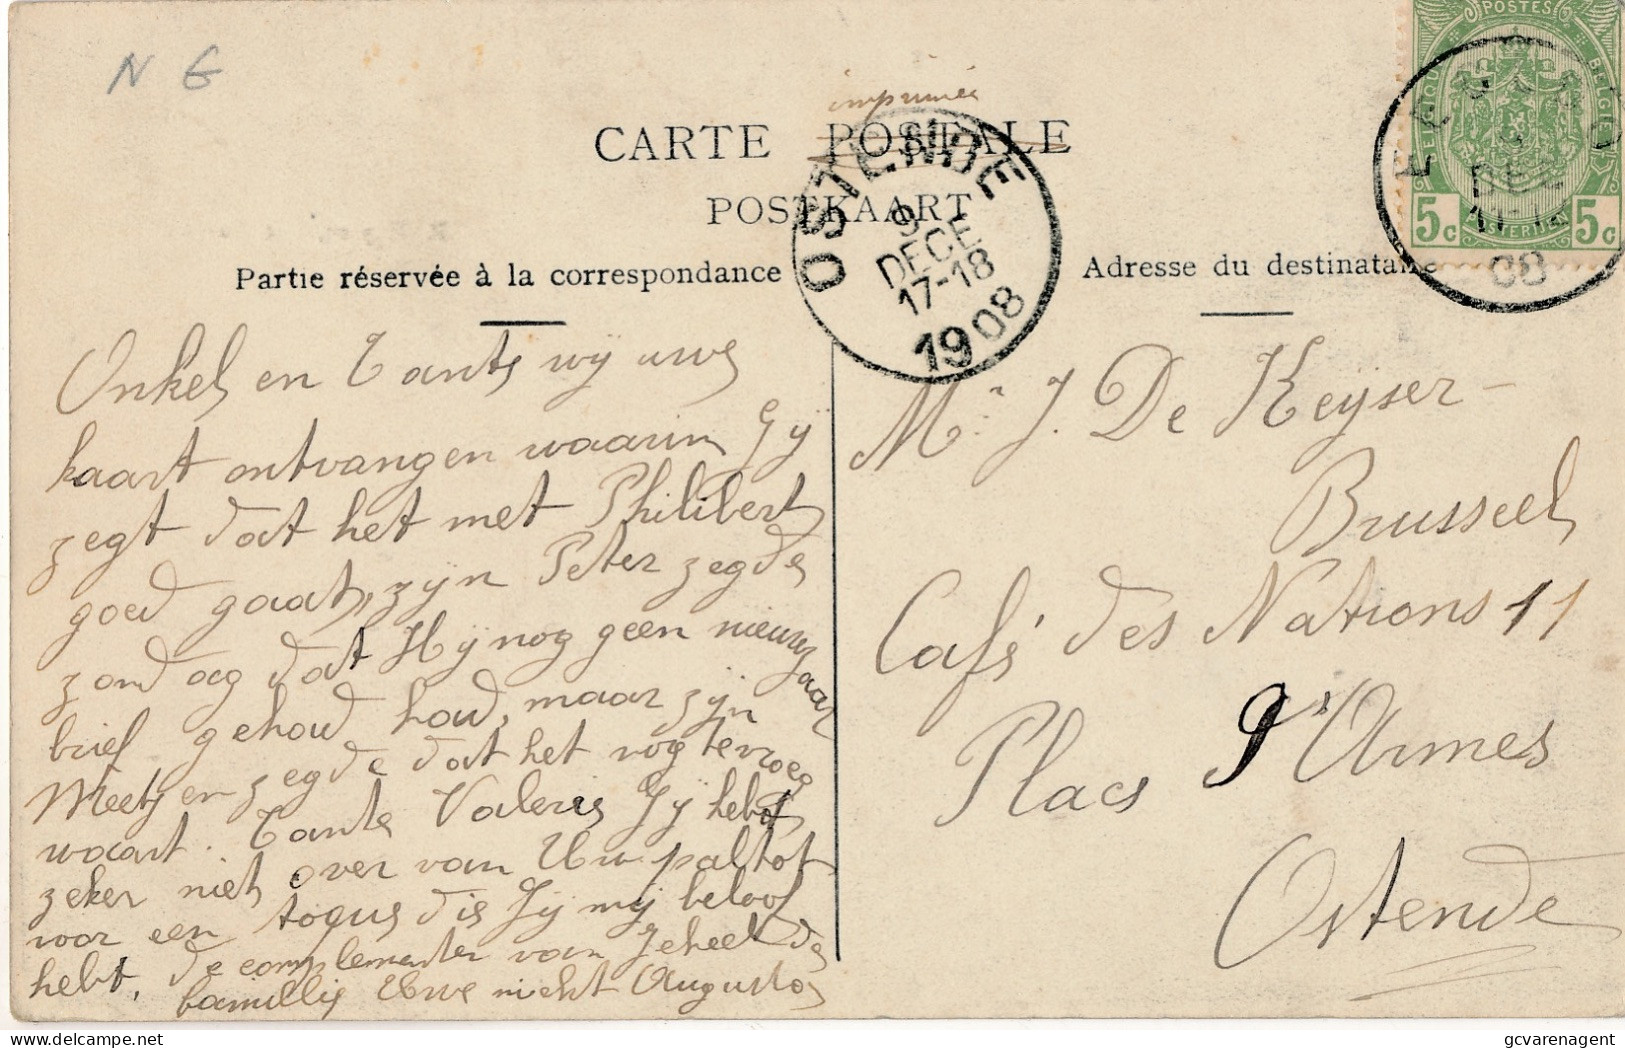 N G
imprimée
CARTE POSTALE
POSTKAART
Partie réservée à la correspondance
Adresse du destinataire
POSTES
BELGIQUE BELGIE
5c POSTERIJEN 5c
DEC
11-12
08
OSTENDE
9
DECE
17-18
1908
Onkel en Tante wij uwe
kaart ontvangen waarin Gÿ
zegt dat het met Philibert
goed gaat, zijn Peter zegde
zondag dat Hÿ nog geen nieuwjaar
brief gehoud houd, maar zijn
Meetj en zegde dat het nog te vroeg
waart. Tante Valerie Gÿ hebt
zeker niet over van Uw paltot
voor een toque die Gÿ mij beloof
hebt, de complementer van geheel de
famillie Uwe nicht Augusta
Mr. J. De Keyser-
Brusseel
Café des Nations 11
Place d'Armes
Ostende
gcvarenagent
delcampe.net